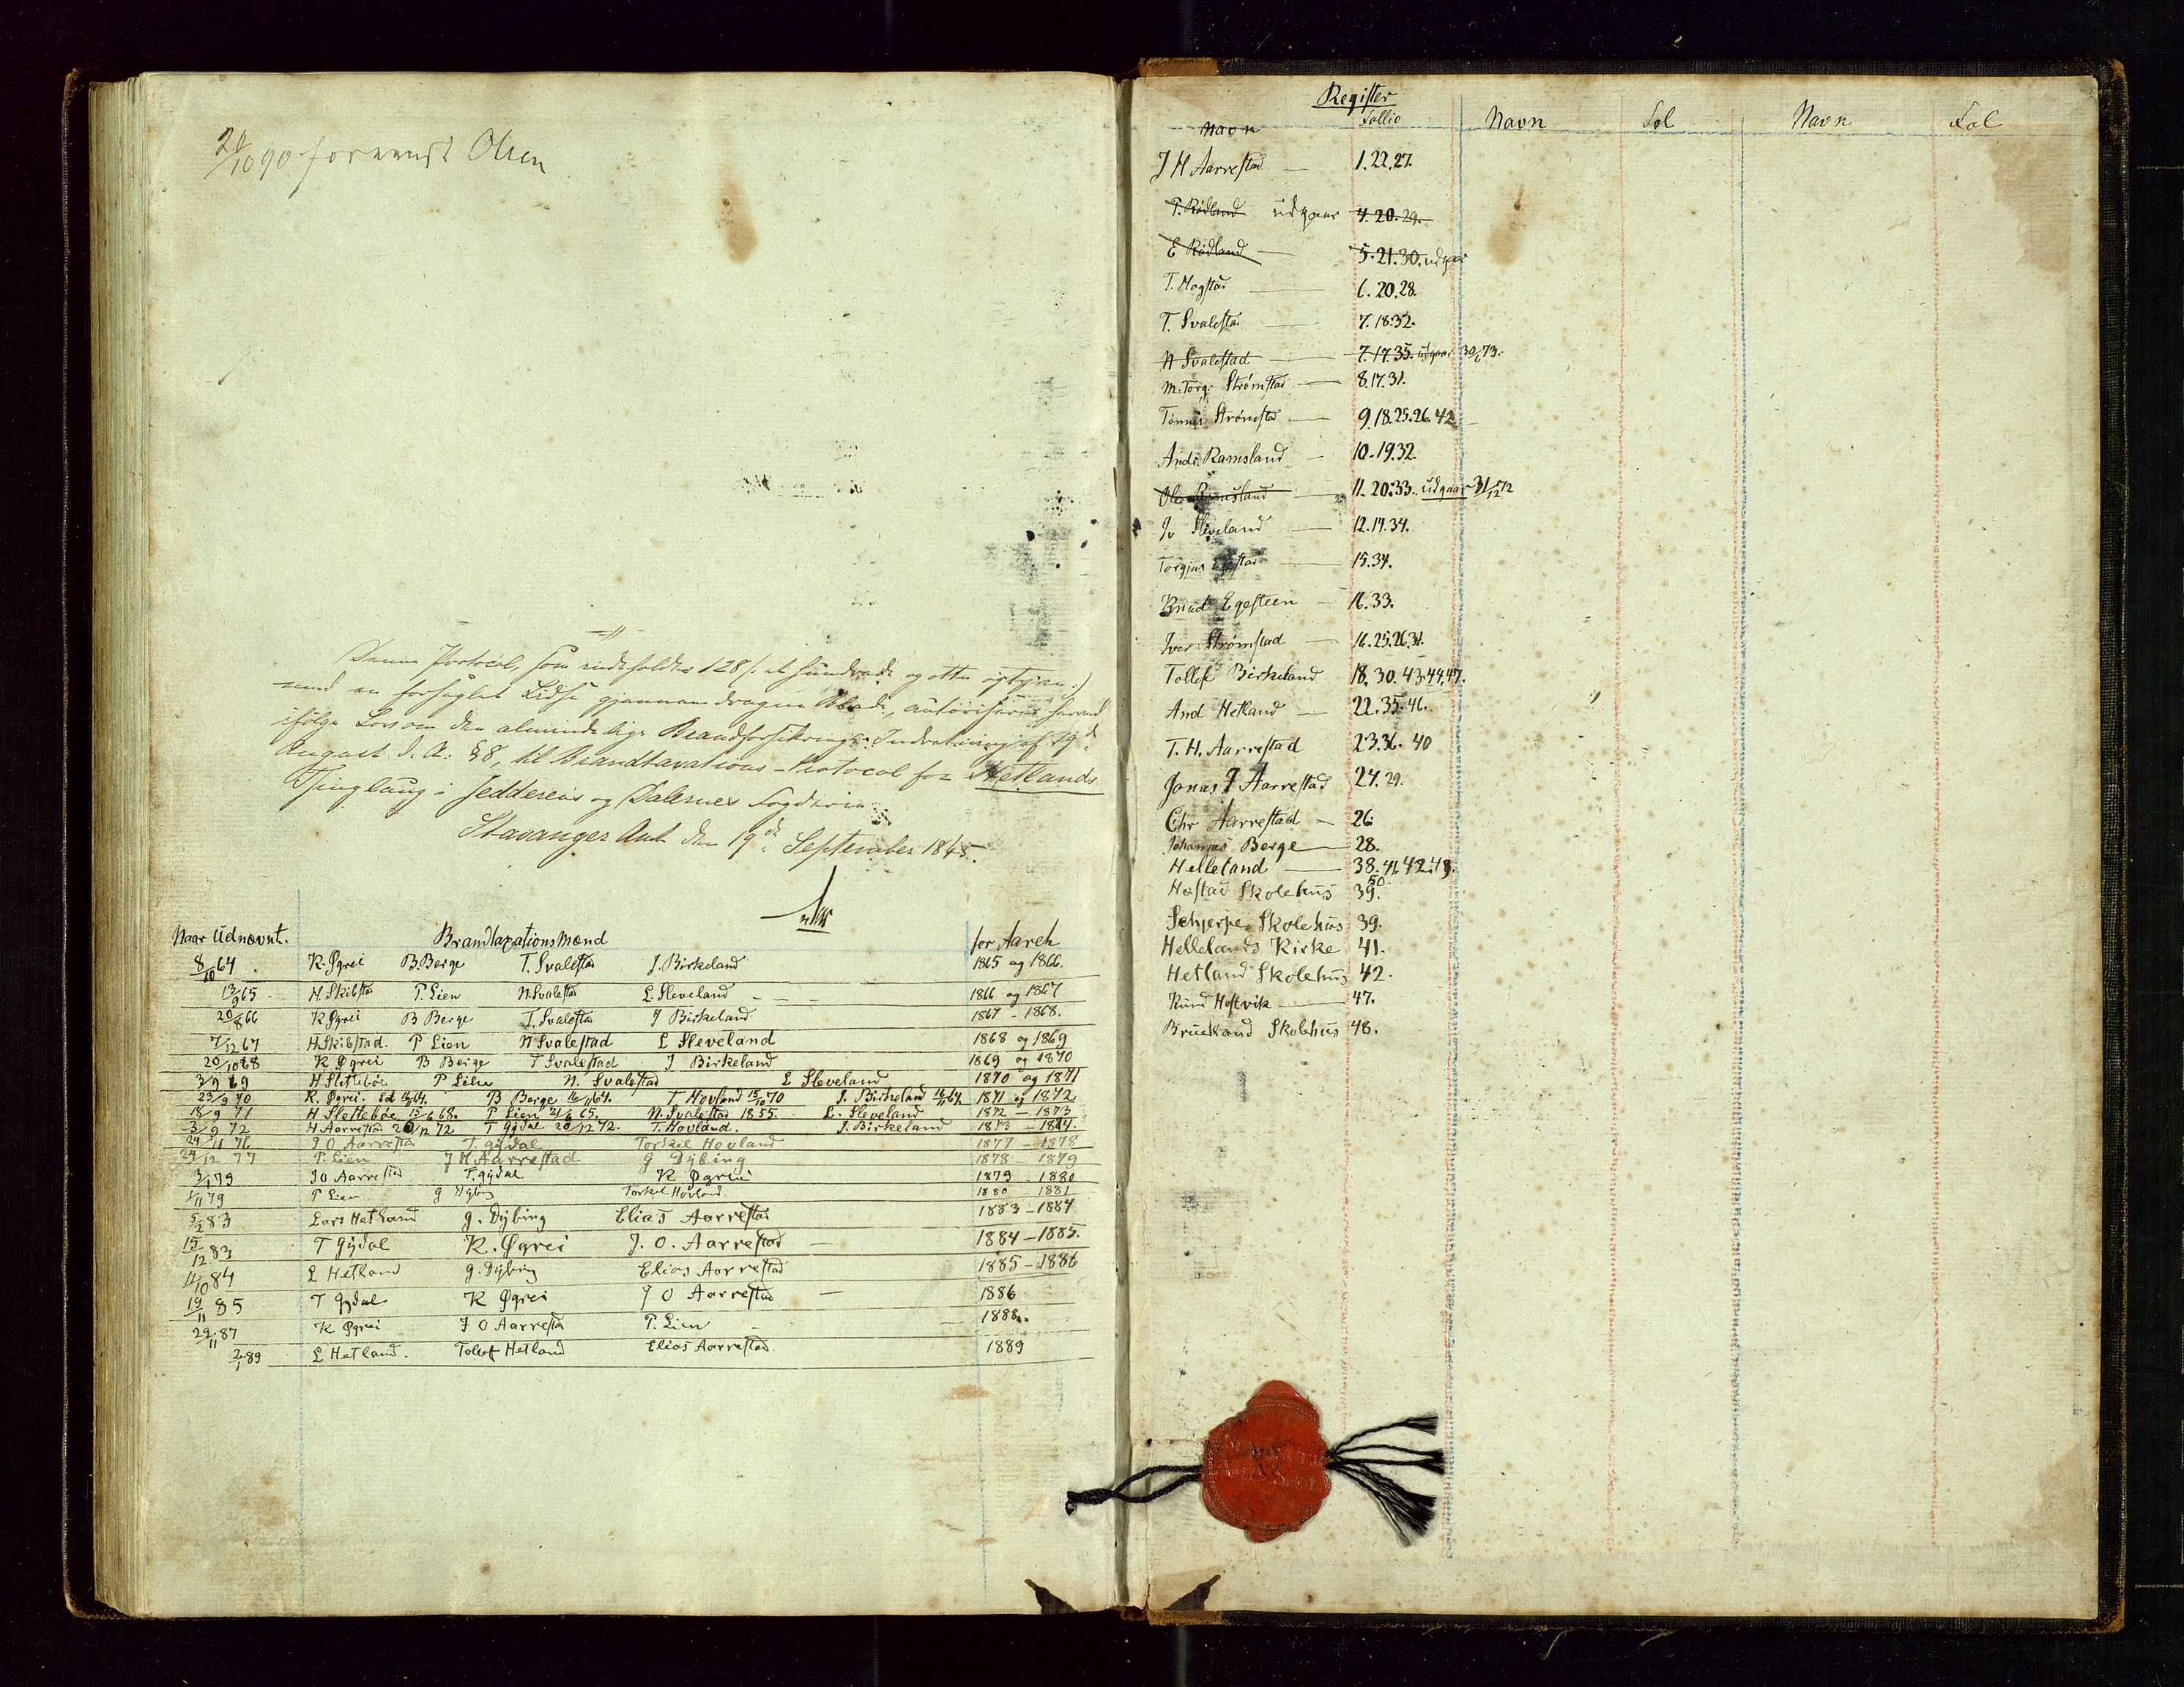 20/10 90 foreviist Olsen
Denne Protocol, som indeholder 128 /: et hundrede og otte og tyve :/
med en forseglet Lidse gjennemdragne Blade, autoriseres herved
ifølge Lov om den almindelige Brandforsikrings-Indretning af 19de
August d. A. §8, til Brandtaxations-Protocol for Hetlands
Thinglaug i Jedderens og Dalernes Fogderi.
Stavanger Amt den 19de September 1845.
Naar Udnævnt. BrandtaxationsMænd for Aareh
8/10 64. K. Øgrei B. Berge T. Svalesta J. Birkeland 1865 og 1866.
13/9 65 H. Skibsta P. Lien N. Svalesta L. Sleveland 1866 og 1867
20/8 66 K Øgrei B Berge T. Svalesta J Birkeland 1867 - 1868.
7/12 67 H Skibstad. P Lien N Svalestad L Sleveland 1868 og 1869
20/10 68 K Øgrei B Berge T Svalestad J Birkeland 1869 og 1870
3/9 69 H Slettebøe P Lien N. Svalestad L Sleveland 1870 og 1871
23/9 70 K. Øgrei. Ed 16/11 64. B Berge 16/11 64. T Hovland 15/10 70 J. Birkeland 16/11 64. 1871 og 1872
18/9 71 H Slettebøe 15/6 68. P Lien 21/6 65. N. Svalestad 1855. L. Sleveland 1872 - 1873
3/9 72 H Aarrestad 20/12 72 T Gydal 20/12 72. T. Hovland. J. Birkeland 1873 - 1874.
24/11 76 J O Aarrestad T. Gydal Torkel Hovland 1877 - 1878
24/12 77 P. Lien J H Aarrestad G Dybing 1878 - 1879
3/1 79 J O Aarrestad T. Gydal K Øgrei 1879 - 1880
1/11 79 P Lien G Dybing Torkel Hovland 1880 - 1881
5/2 83 Lars Hetland G. Dybing Elias Aarrestad 1883 - 1884
15/12 83 T Gydal K. Øgrei J. O. Aarrestad 1884 - 1885.
11/10 84 L Hetland G. Dybing Elias Aarrestad 1885 - 1886
19/11 85 T Gydal K Øgrei J O Aarrestad 1886
29/11 87 K Øgrei J O Aarresta P. Lien 1888.
2/1 89 L Hetland. Tollef Hetland Elias Aarrestad 1889
Register
Navn Follio Navn Fol Navn Fol
J H Aarrestad 1. 22. 27.
T. Rødland udgaar 4. 20. 29.
E Rødland 5. 21. 30. udgaar
T. Mogstad 6. 20. 28.
T. Svalestad 7. 18. 32.
N Svalestad 7. 17. 35. udgaar 30/1 73.
M. Torg. Strømstad 8. 17. 31.
Tønnes Strømstad 9. 18. 25. 26. 42.
Andr. Ramsland 10. 19. 32.
Ole Ramsland 11. 20. 33. udgaar 31/12 72
Jv Sleveland 12. 19. 34.
Torgjus 15. 34.
Knud Egesteen 16. 33.
Iver Strømstad 16. 25. 26. 31.
Tollef Birkeland 18. 30. 43. 44. 47.
And Hetland 22. 35. 46.
T. H. Aarrestad 23. 36. 40
Jonas J Aarrestad 24. 29.
Chr Aarrestad 26.
Johannes Berge 28.
Helleland 38. 41. 42. 49.
50.
Hæstad Skolehus 39.
Schjerpe Skolehus 39.
Hellelands Kirke 41.
Hetland Skolehus 42.
Knud Høstvik 47.
Brueland Skolehus 48.